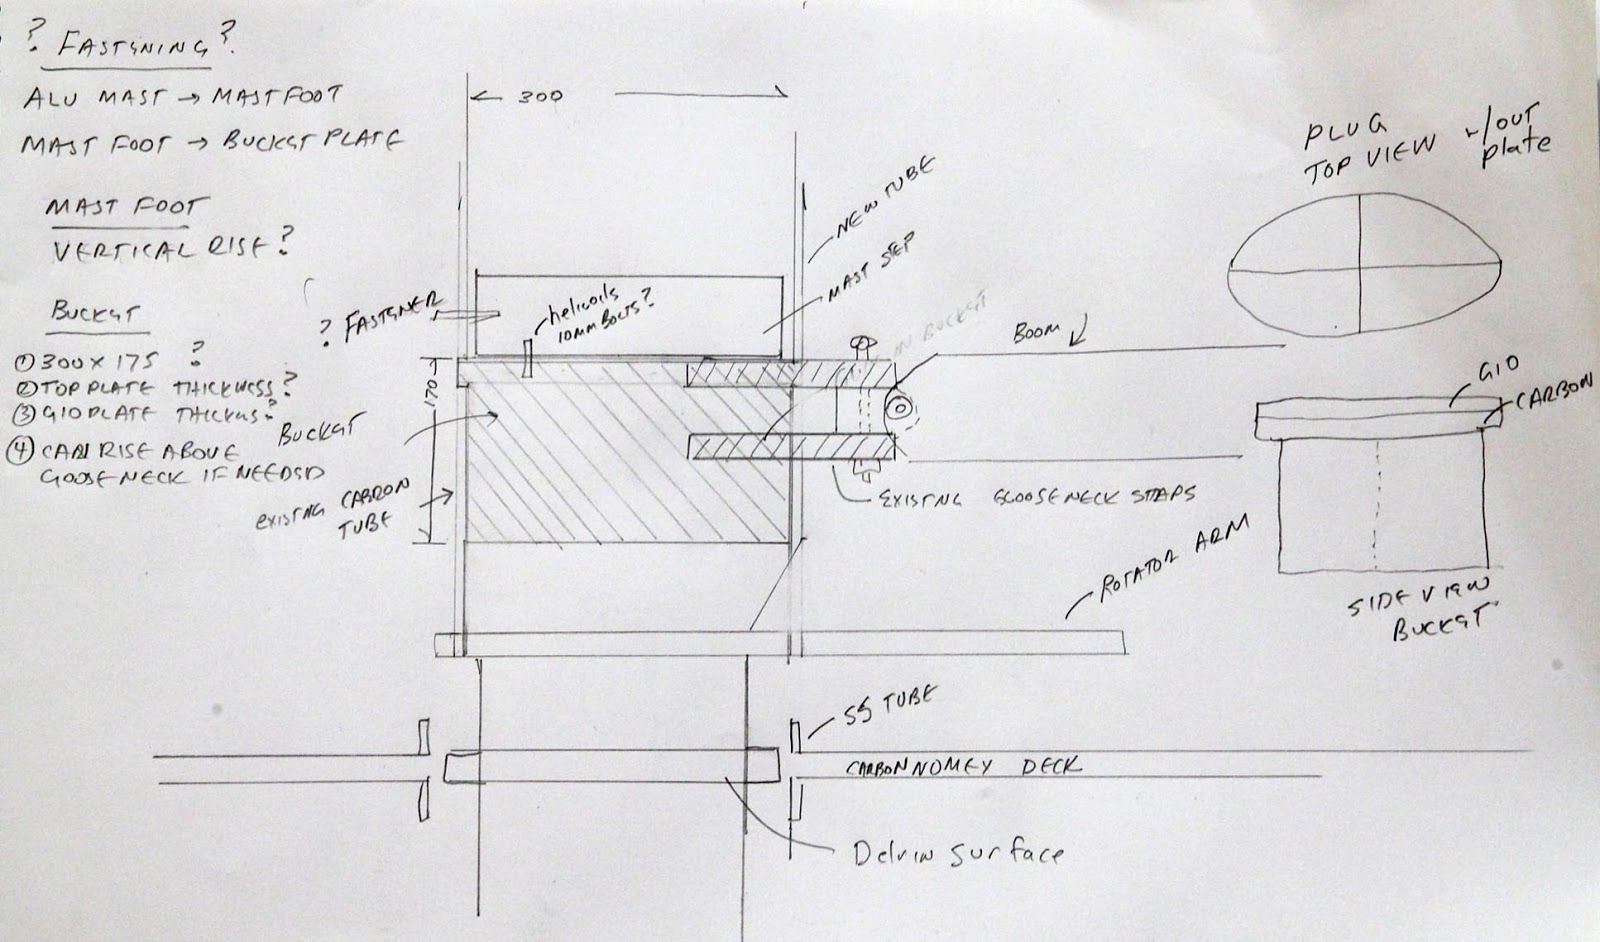 ? FASTENING ?
ALU MAST → MASTFOOT
MAST FOOT → BUCKET PLATE
MAST FOOT
VERTICAL RISE?
BUCKET
① 300 X 175 ?
② TOP PLATE THICKNESS?
③ G10 PLATE THICKNS?
④ CAN RISE ABOVE
GOOSENECK IF NEEDED
300
NEW TUBE
MAST STEP
? FASTENER
helicoils
10mm BOLTS?
IN BUCKET
BOOM
170
BUCKET
EXISTNG CARBON
TUBE
EXISTNG GOOSENECK STRAPS
ROTATOR ARM
SS TUBE
CARBON NOMEX DECK
Delrin surface
PLUG
TOP VIEW w/out
plate
G10
CARBON
SIDE VIEW
BUCKET